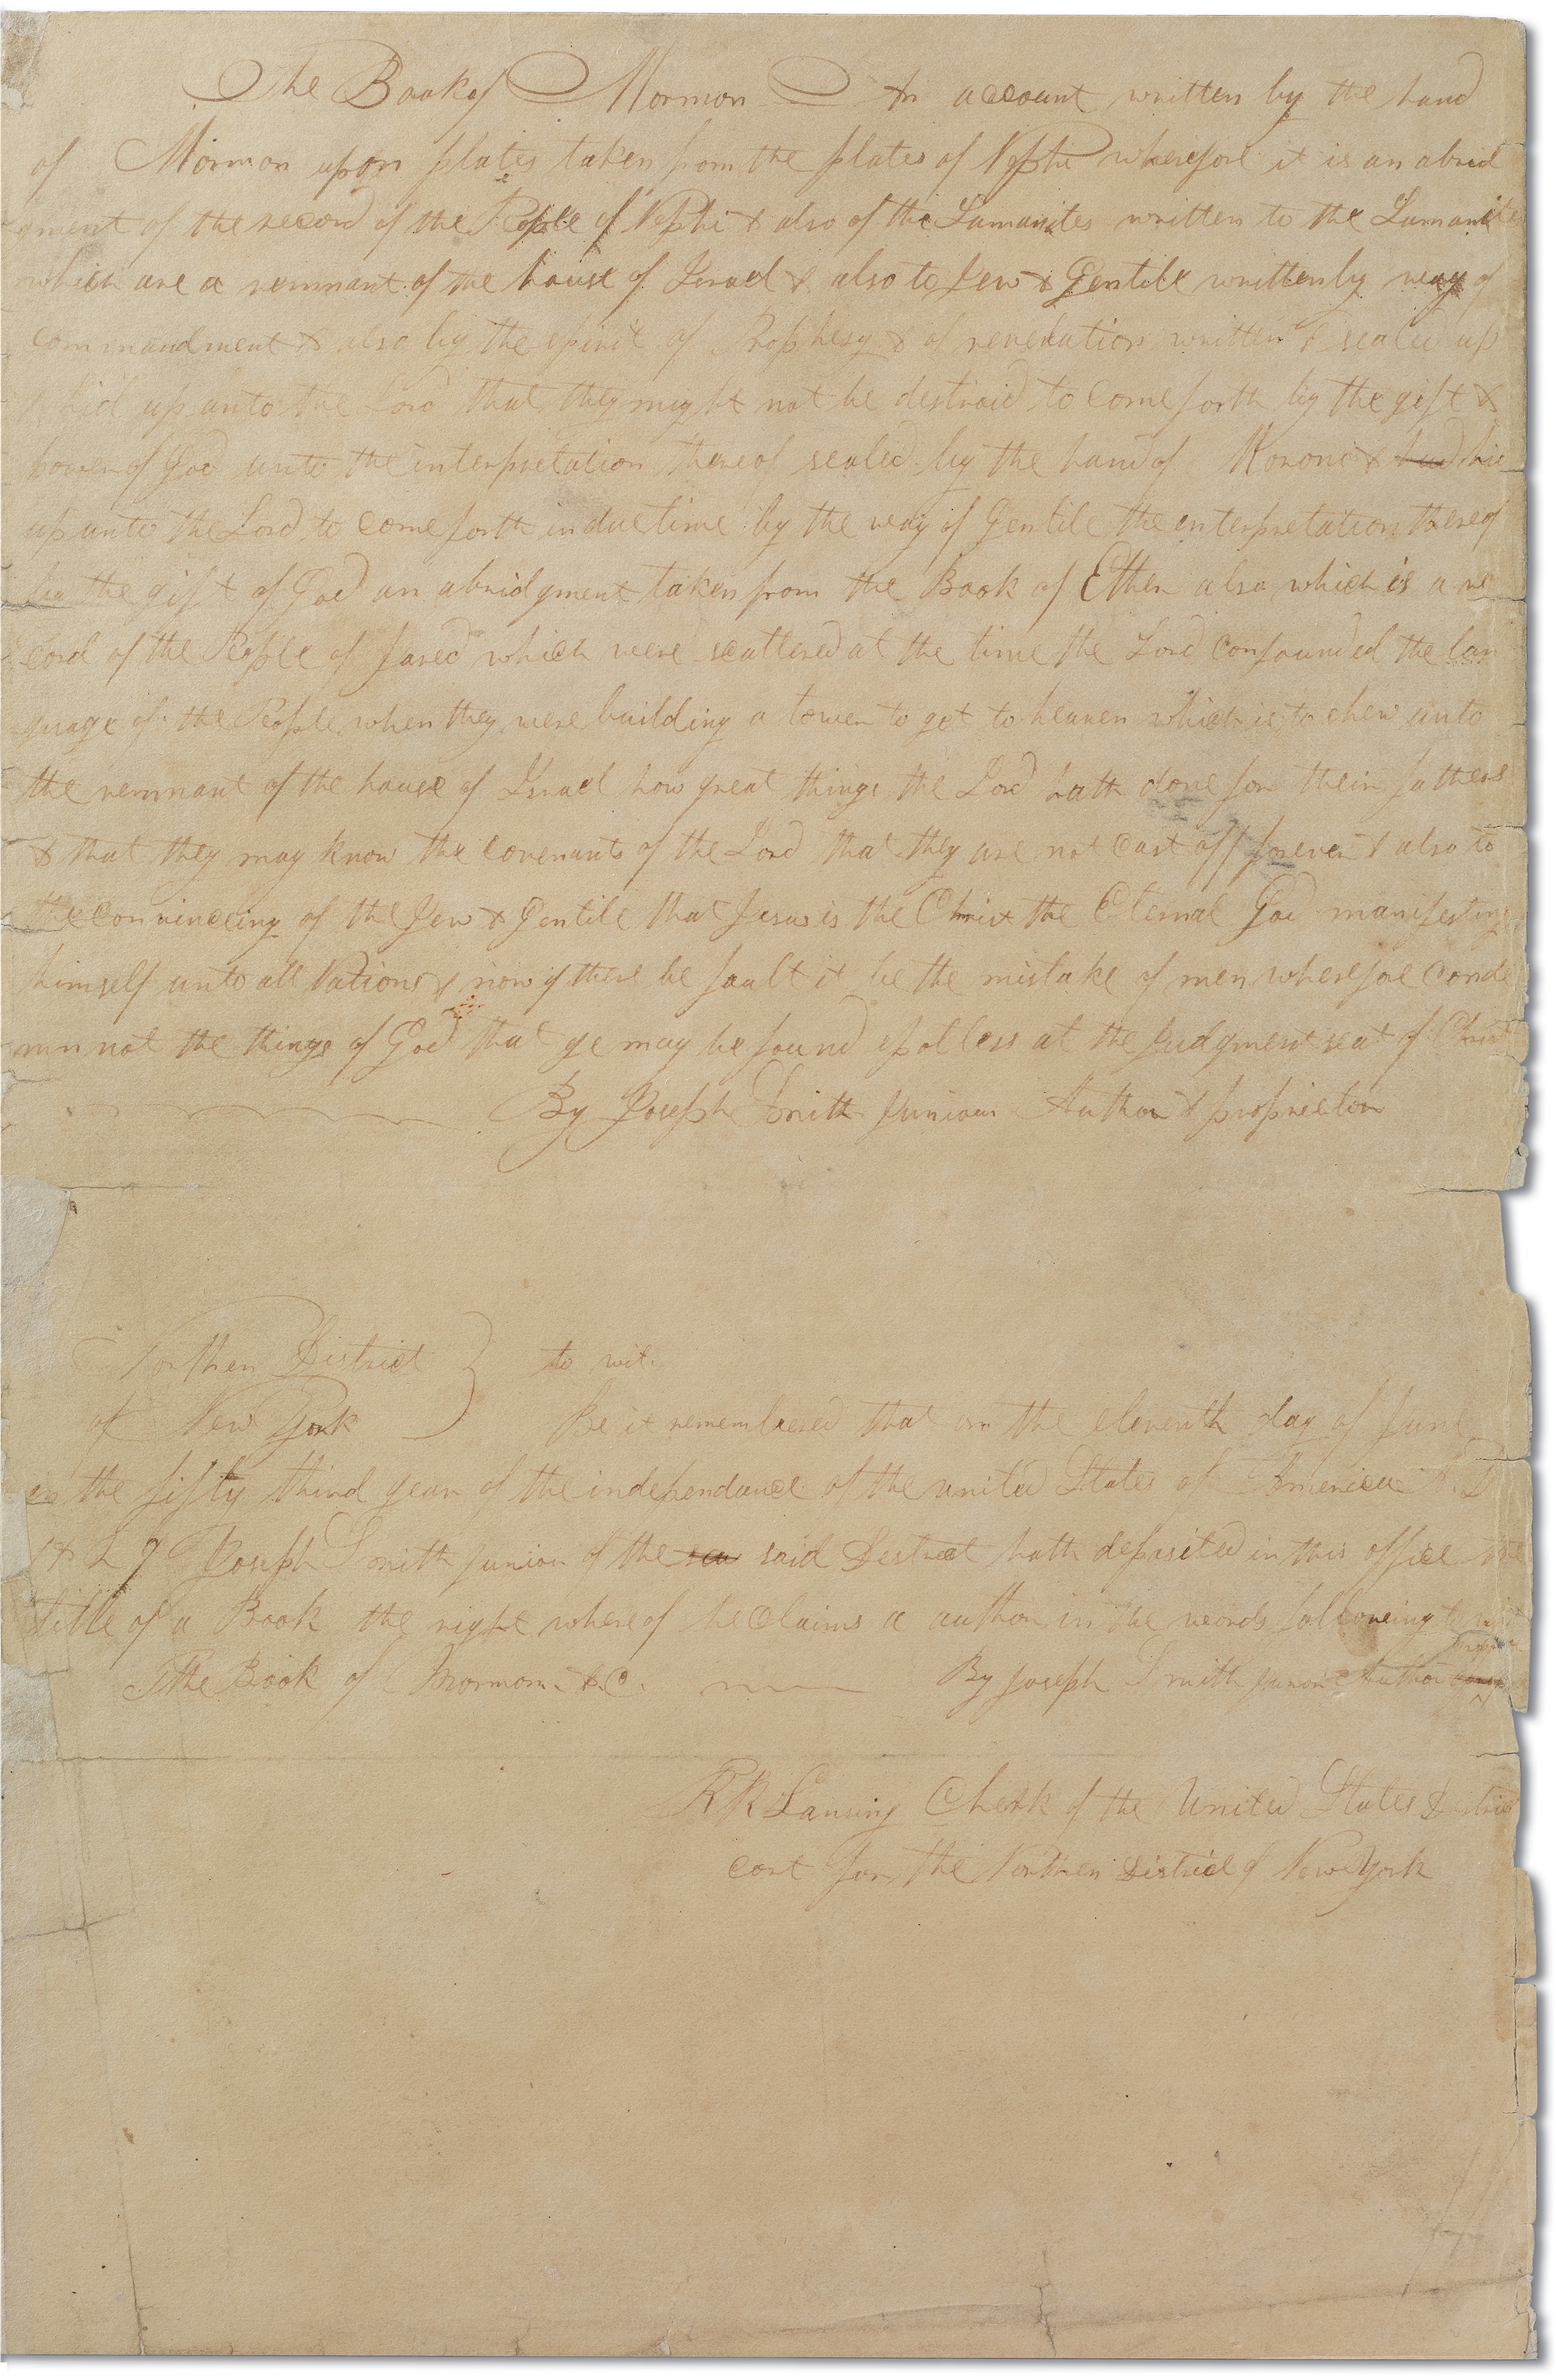 The Book of Mormon An account written by the hand
of Mormon upon plates taken from the plates of Nephi wherefore it is an abrid
gment of the record of the People of Nephi & also of the Lamanites written to the Lamanites
which are a remnant of the house of Israel & also to Jew & Gentile written by way of
commandment & also by the spirit of Prophesy & of revelation written & sealed up
& hid up unto the Lord that they might not be destroid to come forth by the gift &
power of God unto the interpretation thereof sealed by the hand of Moroni & hid
up unto the Lord to come forth in due time by the way of Gentile the interpretation thereof
by the gift of God an abridgment taken from the Book of Ether also which is a re
cord of the People of Jared which were scattered at the time the Lord confounded the lan
guage of the People when they were building a tower to get to heaven which is to shew unto
the remnant of the house of Israel how great things the Lord hath done for their fathers
& that they may know the covenants of the Lord that they are not cast off forever & also to
the convinceing of the Jew & Gentile that Jesus is the Christ the Eternal God manifesting
himself unto all Nations & now if there be fault it be the mistake of men wherefore conde
mn not the things of God that ye may be found spotless at the judgment seat of Christ
By Joseph Smith Junior Author & proprietor
Northern District } to wit.
of New York Be it remembered that on the eleventh day of June
in the fifty third year of the independance of the united States of America A.D
1829 Joseph Smith junior of the said District hath deposited in this office the
title of a Book the right where of he claims a author in the words following to wit
The Book of Mormon &C. By Joseph Smith junior Author
R R Lansing Cherk of the United States District
cort for the Northen District of New York